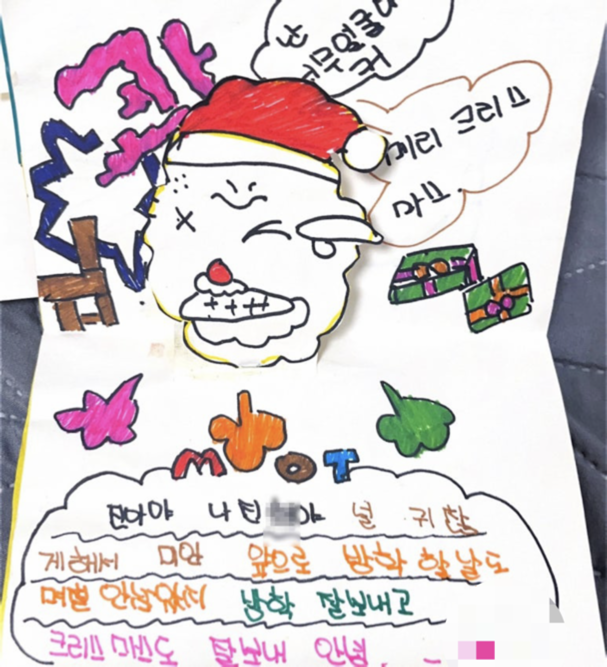 난
얼굴이
커
메리 크리스
마스.
M O T
나 야 널 귀찮
게해서 미안 앞으로 방학 할날도
며칠 안남았지 방학 잘보내고
크리스마스도 잘보내 안녕.